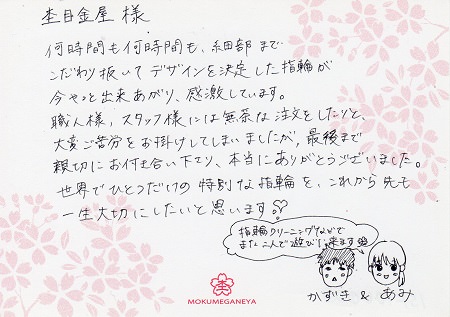 杢目金屋 様
何時間も何時間も、細部まで
こだわり抜いて デザインを決定した指輪が
今やっと出来あがり、感激しています。
職人様，スタッフ様には無茶な注文をしたりと、
大変ご苦労をお掛けしてしまいましたが，最後まで
親切にお付き合い下さり、本当にありがとうございました。
世界でひとつだけの特別な指輪を、これから先も
一生大切にしたいと思います。
指輪クリーニングなどで
また二人で遊びに来ます
かずき & あみ
MOKUMEGANEYA